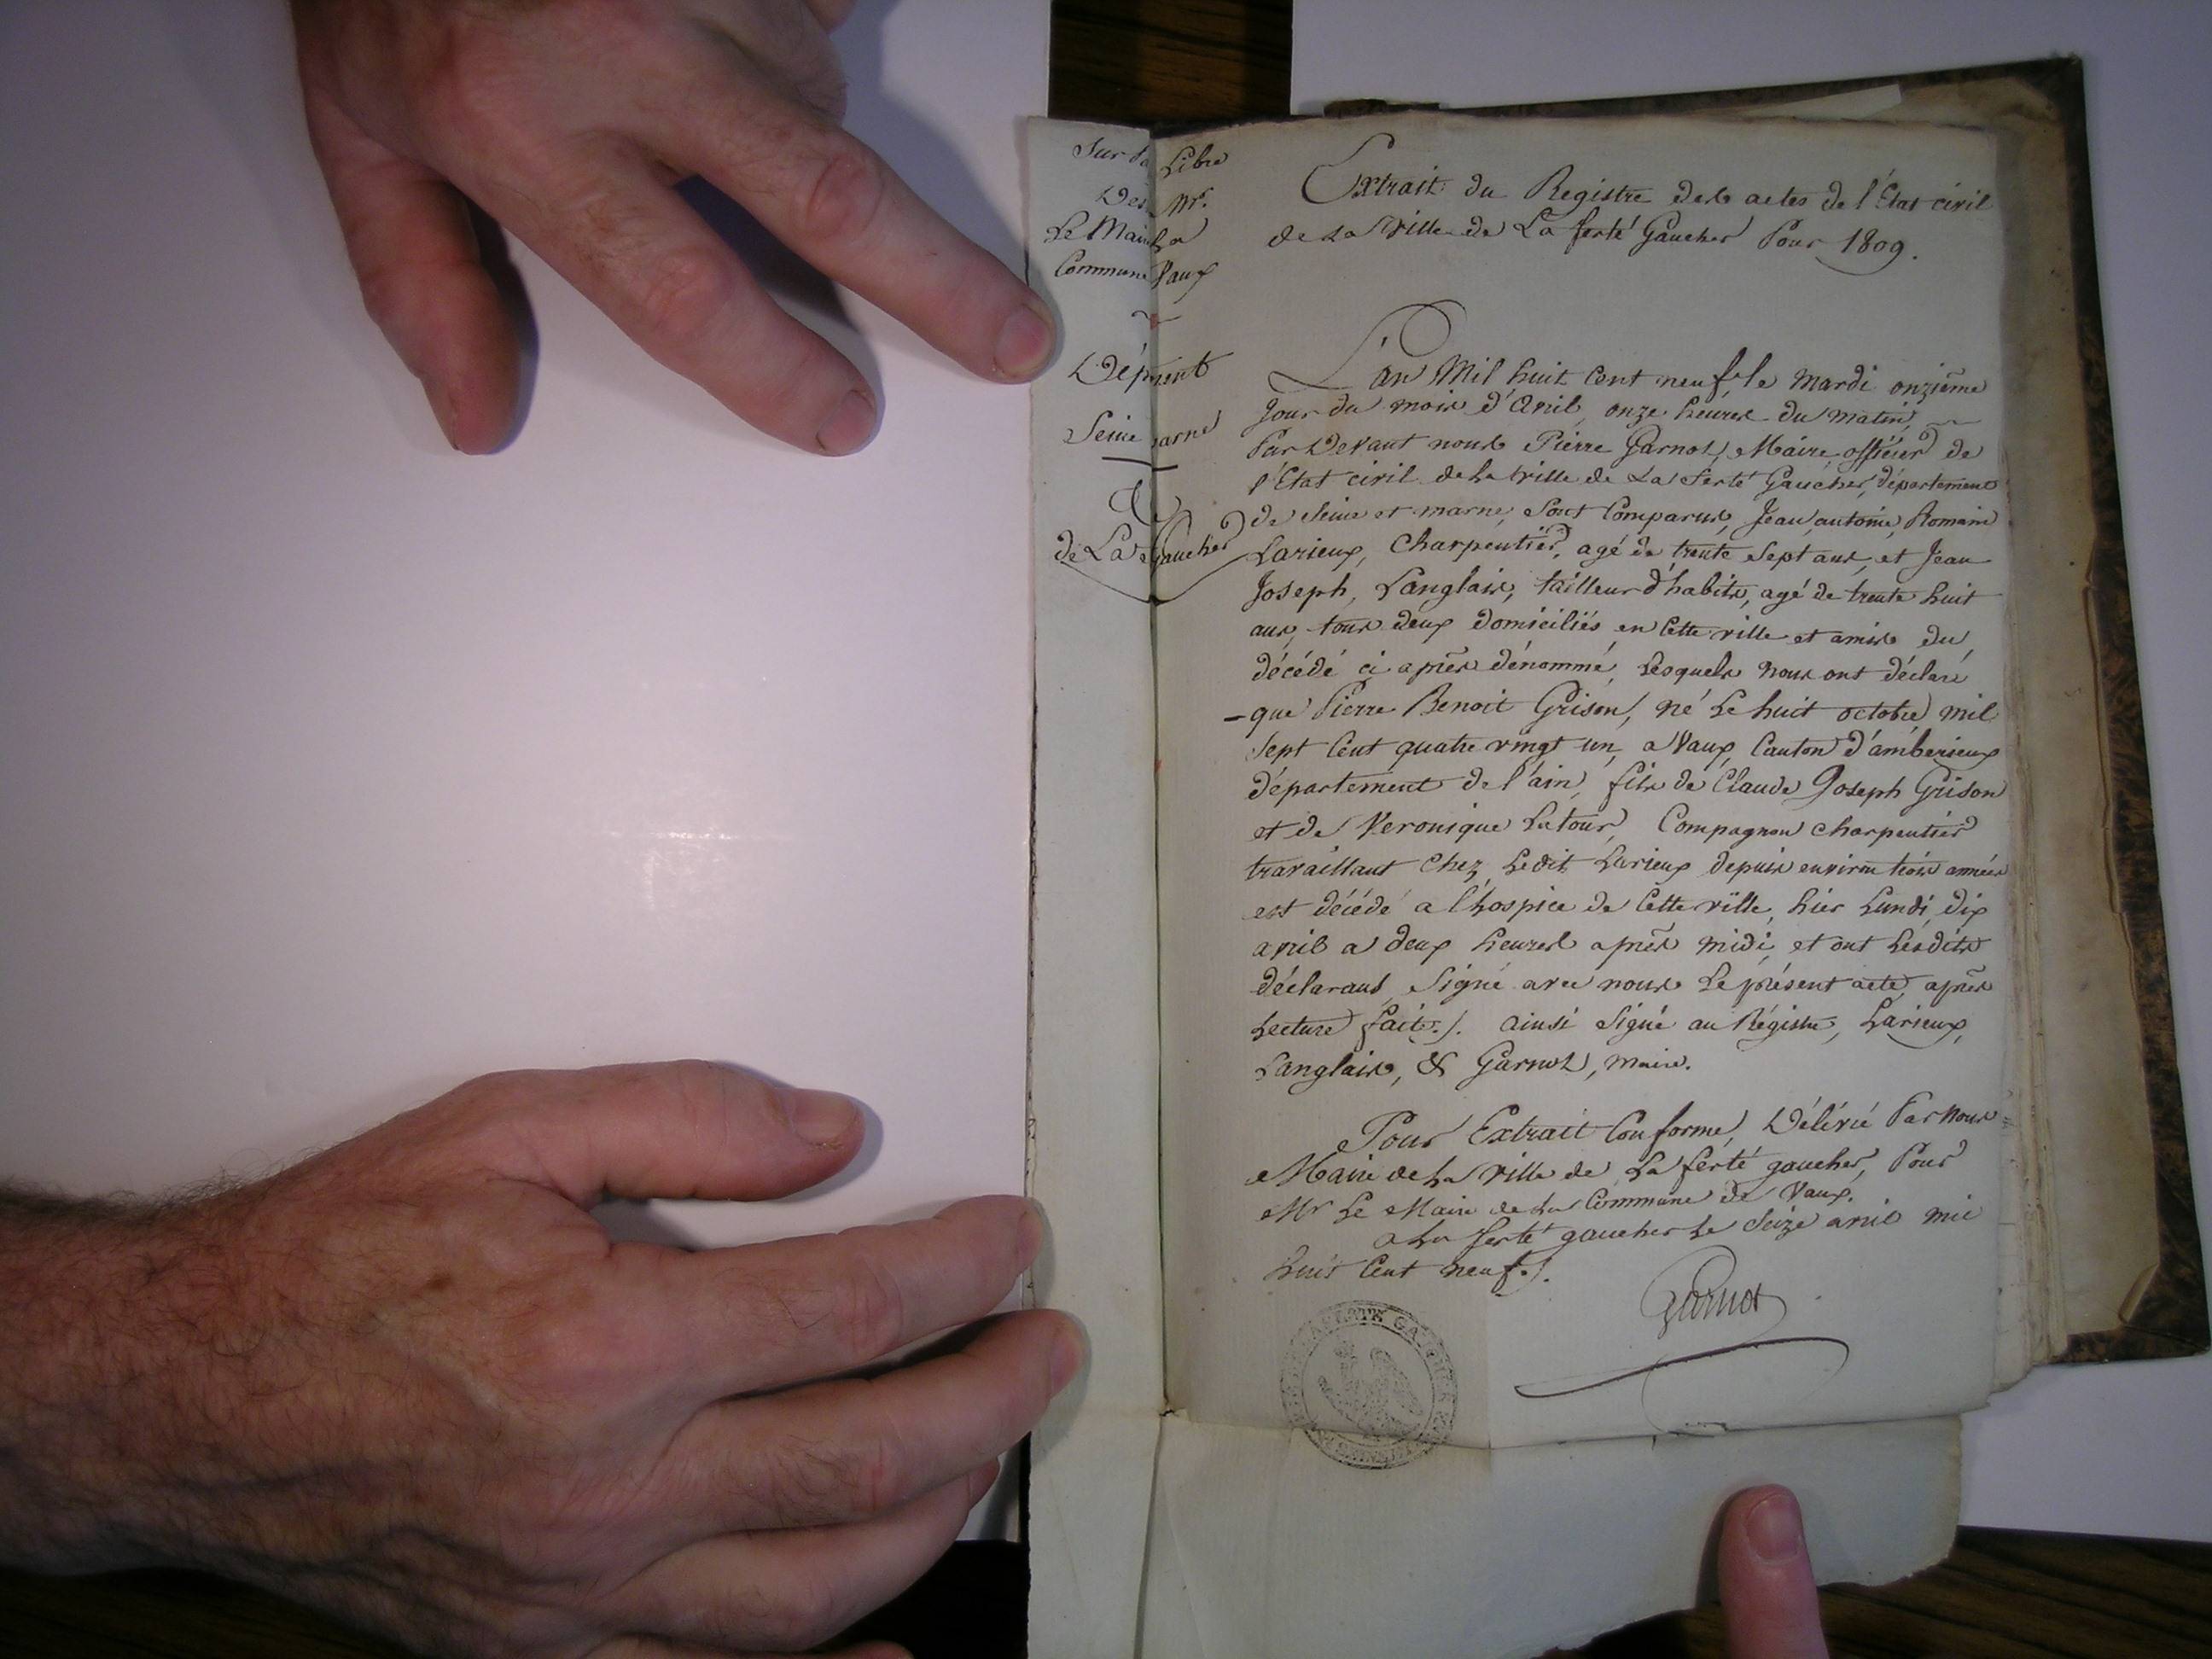 Sur Pa Libre
Des Mr.
Le Maire La
Commune Vaux
Dépment
Seine arne
de La Gaucher
Extrait du Registre des actes de l'État civil
de La Ville de La ferté Gaucher Pour 1809.
L'an Mil huit Cent neuf, le Mardi onzième
Jour du mois d'Avril, onze heures du matin,
Par Devant nous Pierre Garnot, Maire officier de
l'État civil de la Ville de La ferté Gaucher, département
de Seine et marne, Sont Comparus, Jean, antoine, Romain
Larieux, Charpentier, agé de trente Sept ans, et Jean
Joseph, Langlais, tailleur d'habits, agé de trente huit
ans, tous deux domiciliés en Cette ville et amis du
décédé ci après dénommé, Lesquels nous ont déclaré
-que Pierre Benoit Grison, né Le huit octobre mil
Sept Cent quatre vingt un, a Vaux, Canton d'amberieux
département de l'ain, fils de Claude Joseph Grison
et de Veronique Latour, Compagnon Charpentier
travaillant Chez Ledit Larieux depuis environ trois années
est décédé a l'hospice de Cette ville, hier Lundi, dix
avril a deux heures après midi, et ont Lesdits
déclarans, Signé avec nous Le présent acte, après
Lecture faite./. ainsi Signé au Régistre, Larieux,
Langlais, & Garnot, maire.
Pour Extrait Conforme, Délivré Par nous
Maire de La Ville de La ferté gaucher, Pour
Mr Le Maire de La Commune de Vaux.
a La ferté gaucher Le Seize avril mil
huit Cent neuf./.
Garnot